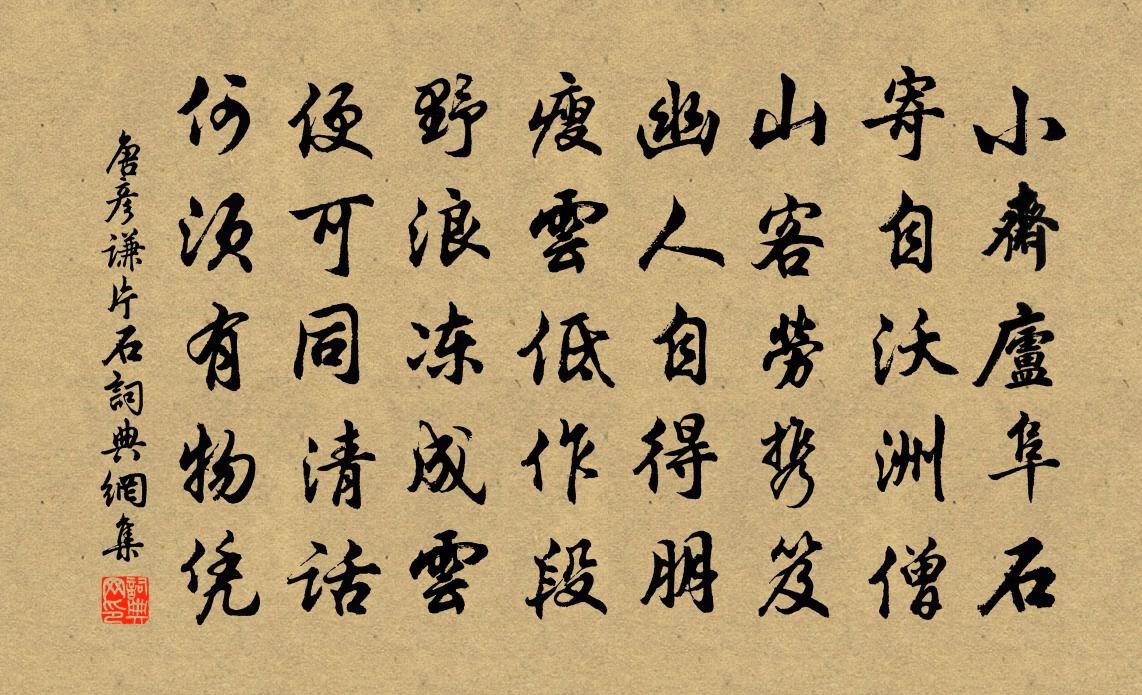 小齋廬阜石
寄自沃洲僧
山客勞携笈
幽人自得朋
瘦雲低作段
野浪冻成雲
便可同清話
何須有物凭
唐彦谦片石詞典網集
詞典网印